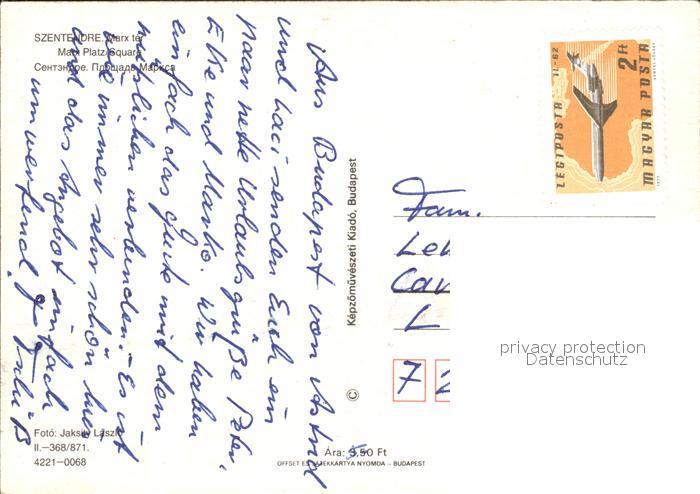 SZENTENDRE. Marx tér
Marx Platz/Square
Сентэндре. Площадь Маркса
Aus Budapest von Astrid
und Laci senden Euch ein
paar nette Urlaubsgrüße Peter,
Elke und Marko. Wir haben
einfach das Gute mit dem
nützlichen verbunden. Es ist
immer sehr schön hier
und das Angebot einfach
umwerfend. Tschüß
Fotó: Jaksity László
II.–368/871.
4221–0068
Képzőművészeti Kiadó, Budapest
©
Ára: 3,50 Ft
OFFSET ÉS JÁTÉKKÁRTYA NYOMDA – BUDAPEST
LÉGIPOSTA TI-62
2 Ft
MAGYAR POSTA
Fam.
7 2
privacy protection
Datenschutz